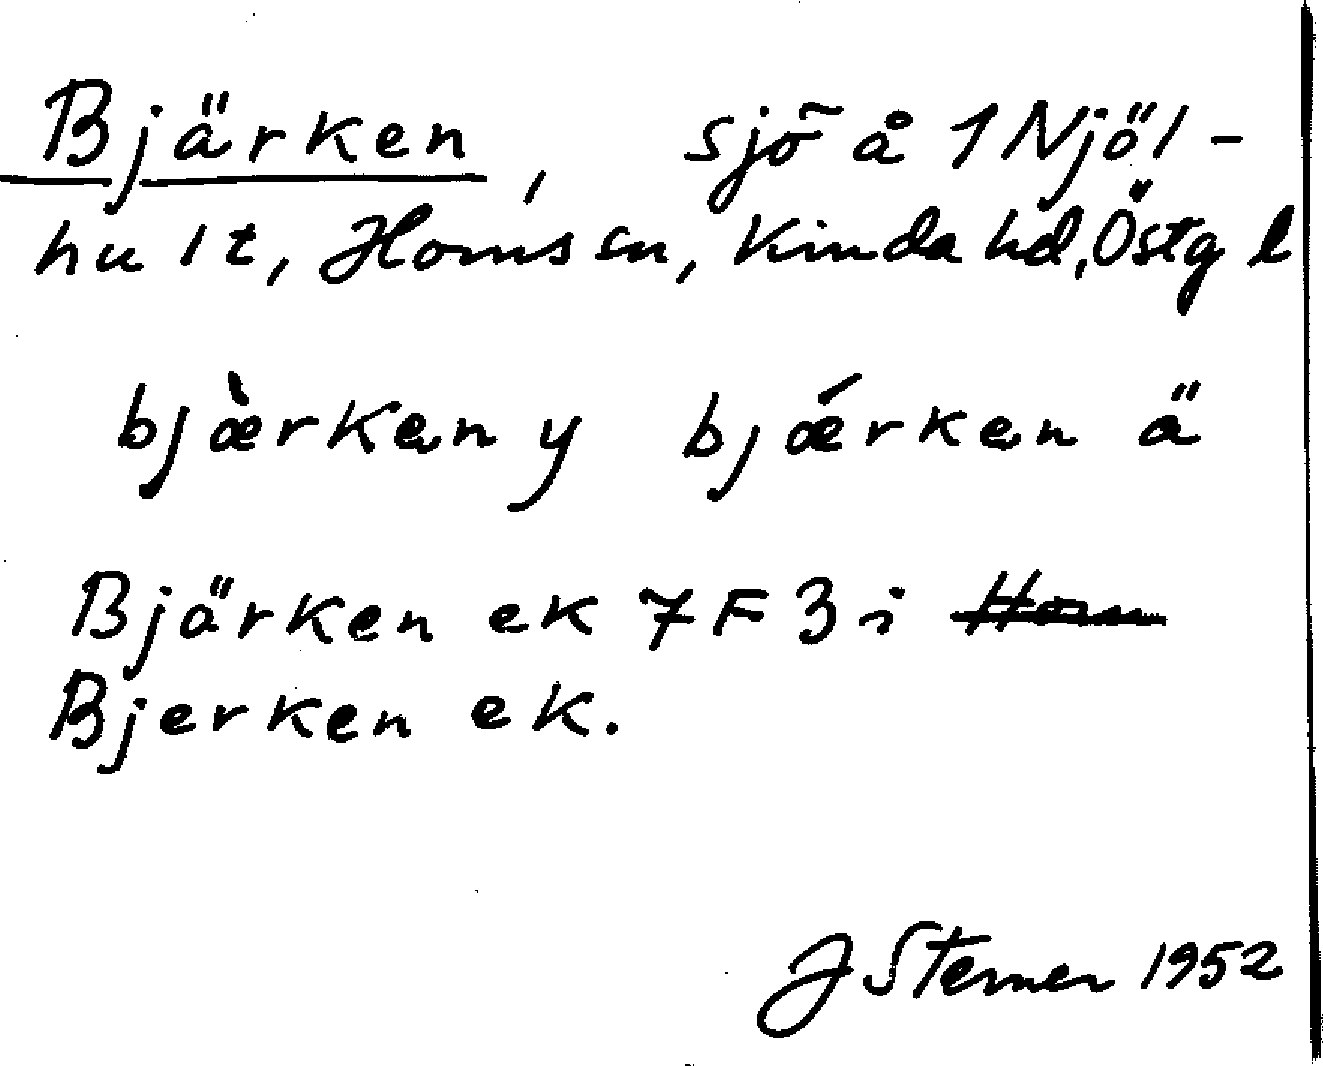 Bjärken, sjö å 1 Njöl-
hult, Horns sn, Kinda hd, Östg l
bjæ̀rken y bjǽrken ä
Bjärken ek 7 F 3 i Horn
Bjerken ek.
J Sterner 1952